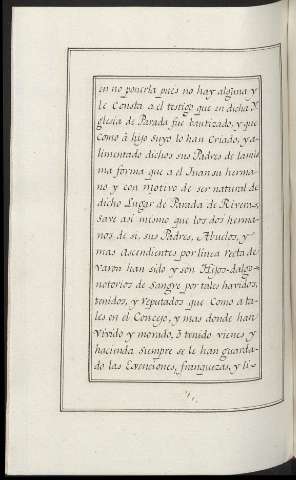 en no ponerla pues no hay alguna y
le Consta a el testigo que en dicha Y
glesia de Parada fue bautizado, y que
como à hijo suyo lo han Criado, y a-
limentado dichos sus Padres de la mis
ma forma que a el Juan su herma-
no y con motivo de ser natural de
dicho Lugar de Parada de Rivera
Save asi mismo que los dos herma-
nos de si, sus Padres, Abuelos, y
mas Ascendientes por linea recta de
varon han sido y son Hijos-dalgo
notorios de Sangre por tales havidos,
tenidos, y reputados que Como a ta-
les en el Concejo, y mas donde han
vivido y morado, ò tenido vienes y
hacienda siempre se le han guarda-
do las Exenciones, franquezas, y li-